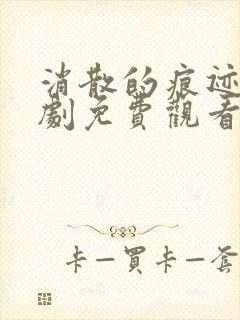 消散的痕迹
劇免費觀看
卡—買卡—套